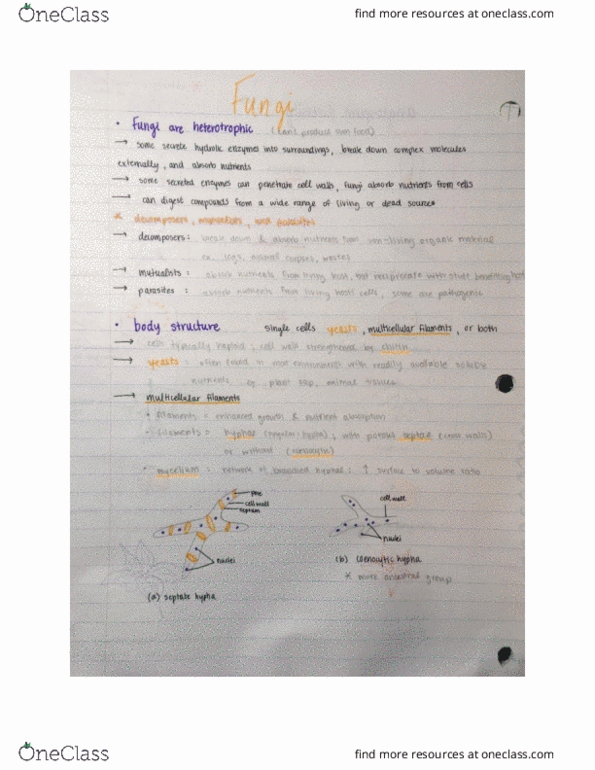 OneClass
find more resources at oneclass.com
Fungi
1
• Fungi are heterotrophic (can't produce own food)
→ some secrete hydrolic enzymes into surroundings, break down complex molecules
externally, and absorb nutrients
→ some secreted enzymes can penetrate cell walls, fungi absorb nutrients from cells
→ can digest compounds from a wide range of living or dead source
* decomposers, mutualists, and parasites
→ decomposers: break down & absorb nutrients from non-living organic material
ex. logs, animal corpses, wastes
→ mutualists: absorb nutrients from living host, but reciprocate with stuff benefitting host
→ parasites: absorb nutrients from living host cells, some are pathogenic
• body structure single cells yeasts, multicellular filaments, or both
→ cells typically haploid, cell wall strengthened by chitin
→ yeasts: often found in moist environments with readily available soluble
nutrients, eg. plant sap, animal tissues
→ multicellular filaments
• filaments = enhanced growth & nutrient absorption
• filaments = hyphae (singular: hypha), with porous septae (cross walls)
or without (coenocytic)
• mycelium: network of branched hyphae: ↑ surface to volume ratio
pore
cell wall
septum
nuclei
(a) septate hypha
cell wall
nuclei
(b) coenocytic hypha
* more ancestral group
OneClass
find more resources at oneclass.com